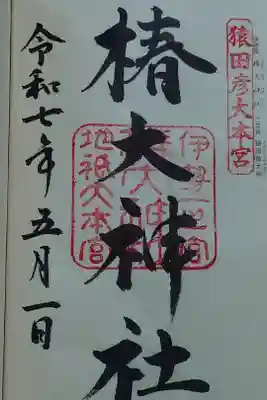 猿田彦大本宮
椿大神社
伊勢一之宮
地祇大本宮
令和七年五月一日